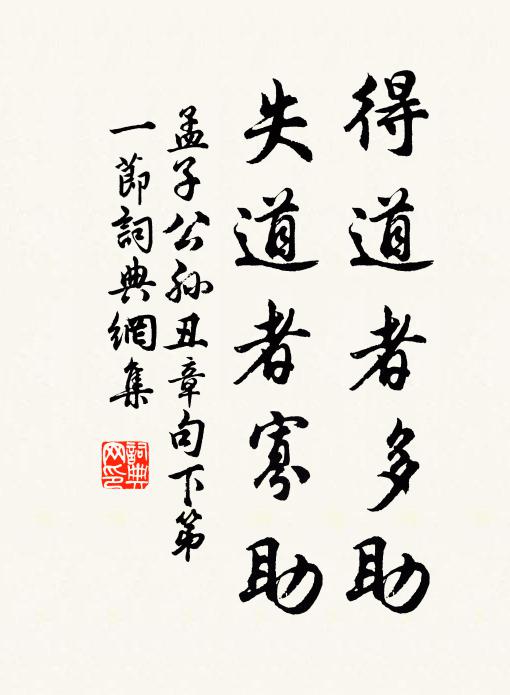 得道者多助
失道者寡助
孟子公孫丑章句下第
一節詞典網集
詞典
网印